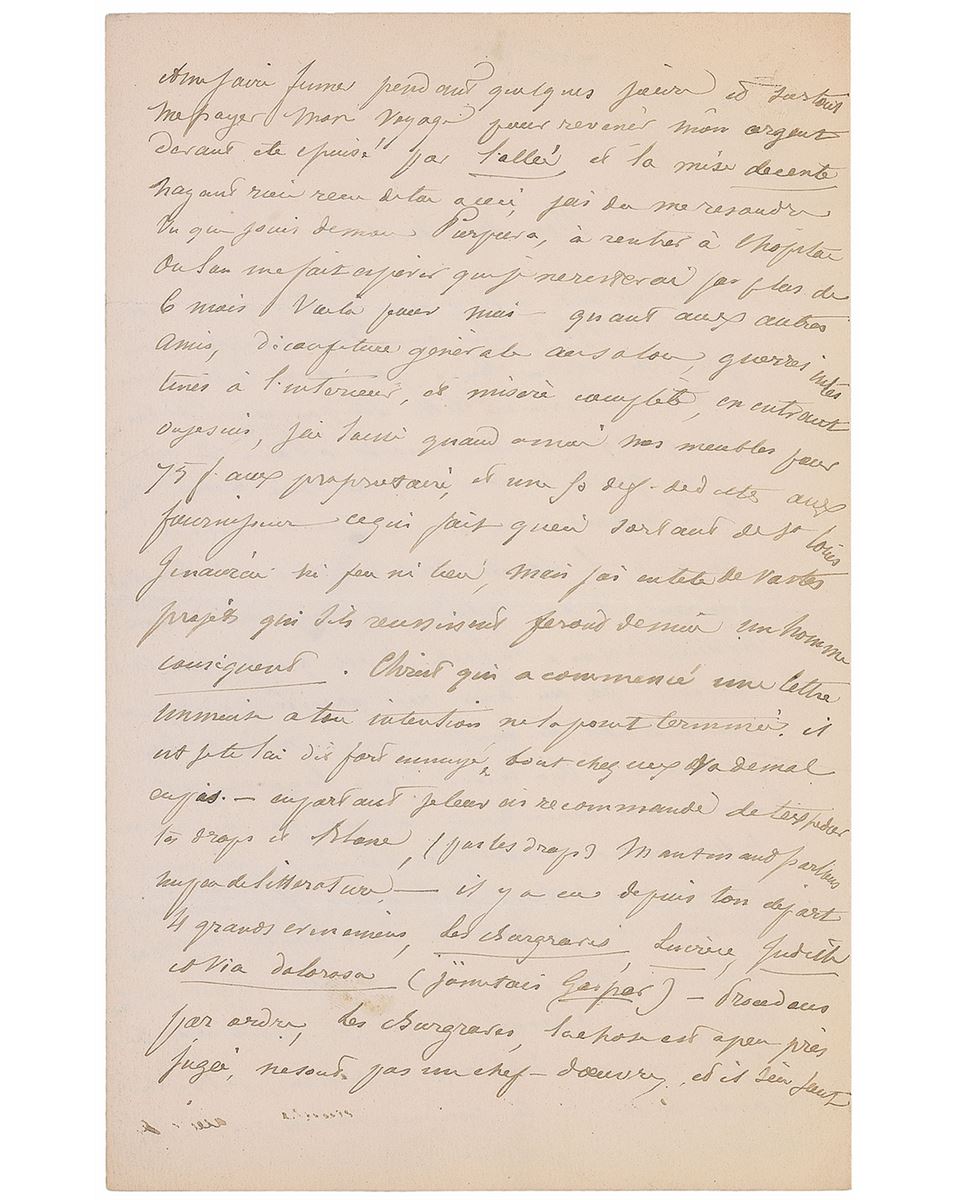 et me faire fumer pendant quelques jours et surtout
me payer mon voyage pour revenir mon argent
devant ete epuisé par l'allée et la mise decente
nayant rien recu de toi ici, jai du me resoudre
vu que jouis de mon Purpura, à rentrer à l'hopital
Ou l'on me fait espérer que je ne resterai pas plus de
6 mois Voila pour moi – quant aux autres
Amis, déconfiture générale au salon, guerres intes
tines à l'intérieur, et misère complète, en entrant
ou je suis, j'ai laissé quand a moi nos meubles pour
75 f. aux proprietaire, et une de dettes aux
fournisseur ce qui fait qu'en sortant de St louis
Je naurai ni feu ni lieu, mais jai en tete de vastes
projets qui s'ils reussissent feront de moi un homme
consequent. Christ qui a commencé une lettre
immense a ton intention ne la point terminé. il
est je te l'ai dit fort ennuyé, tout chez eux va de mal
en pis. – en partant je leur ai recommandé de texpedier
tes draps et Blanc, (pas les draps) Maintenant parlons
un peu de litterature, – il y a eu depuis ton départ
4 grands evenemens, Les Burgraves, Lucrèce, Judith
et Via dolorosa (j'omettais Gaspar) – Procedons
par ordre, Les Burgraves, la chose est a peu près
jugée, ne sont pas un chef-d'œuvre, et il s'en faut